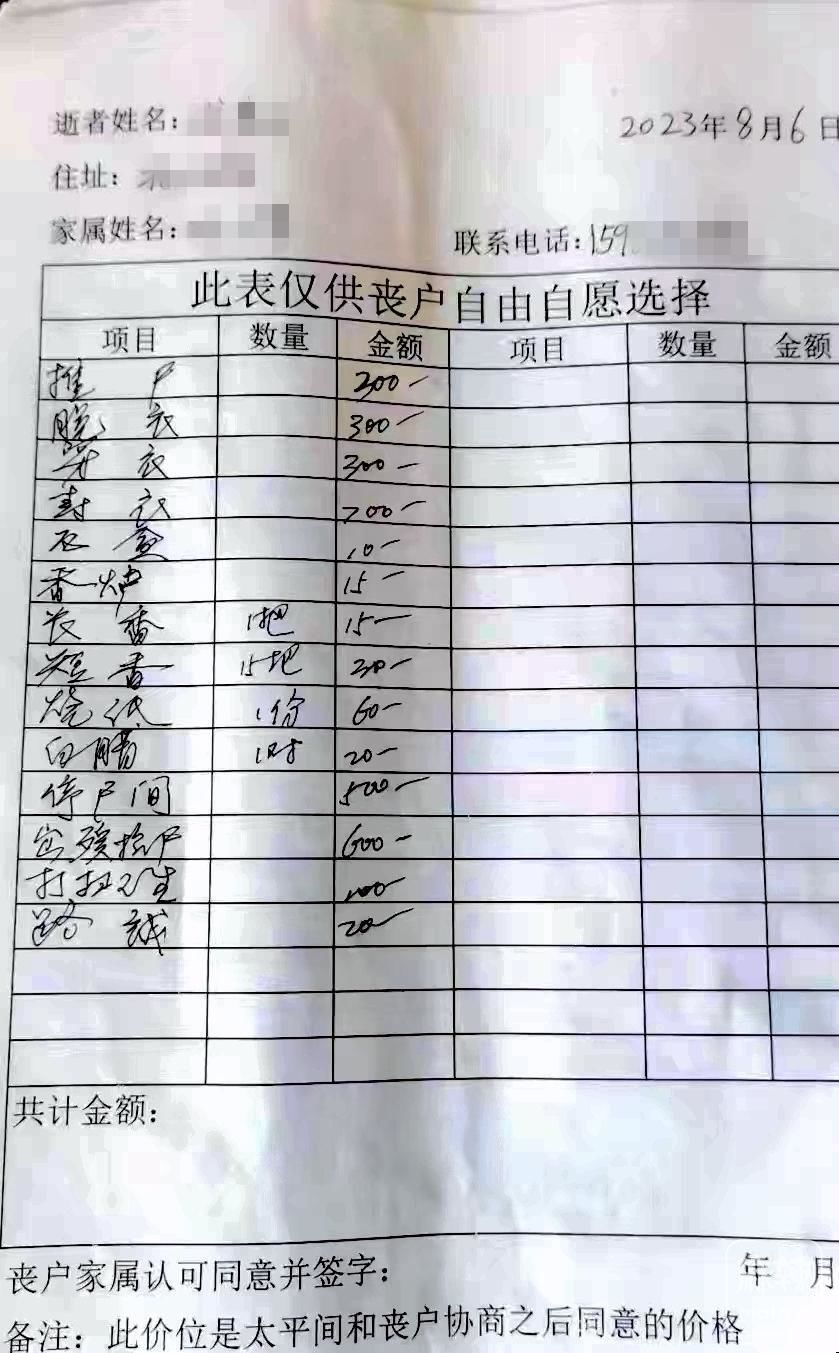 逝者姓名:
2023年8月6日
住址:
家属姓名:
联系电话:159
此表仅供丧户自由自愿选择
项目 数量 金额 项目 数量 金额
推尸 200-
脱衣 300-
穿衣 300-
封衣 200-
10-
香炉 15-
长香 1把 15-
短香 15把 30-
烧纸 1份 60-
白腊 1对 20-
停尸间 500-
出殡抬尸 600-
打扫卫生 100-
20-
共计金额:
丧户家属认可同意并签字:
年 月
备注:此价位是太平间和丧户协商之后同意的价格